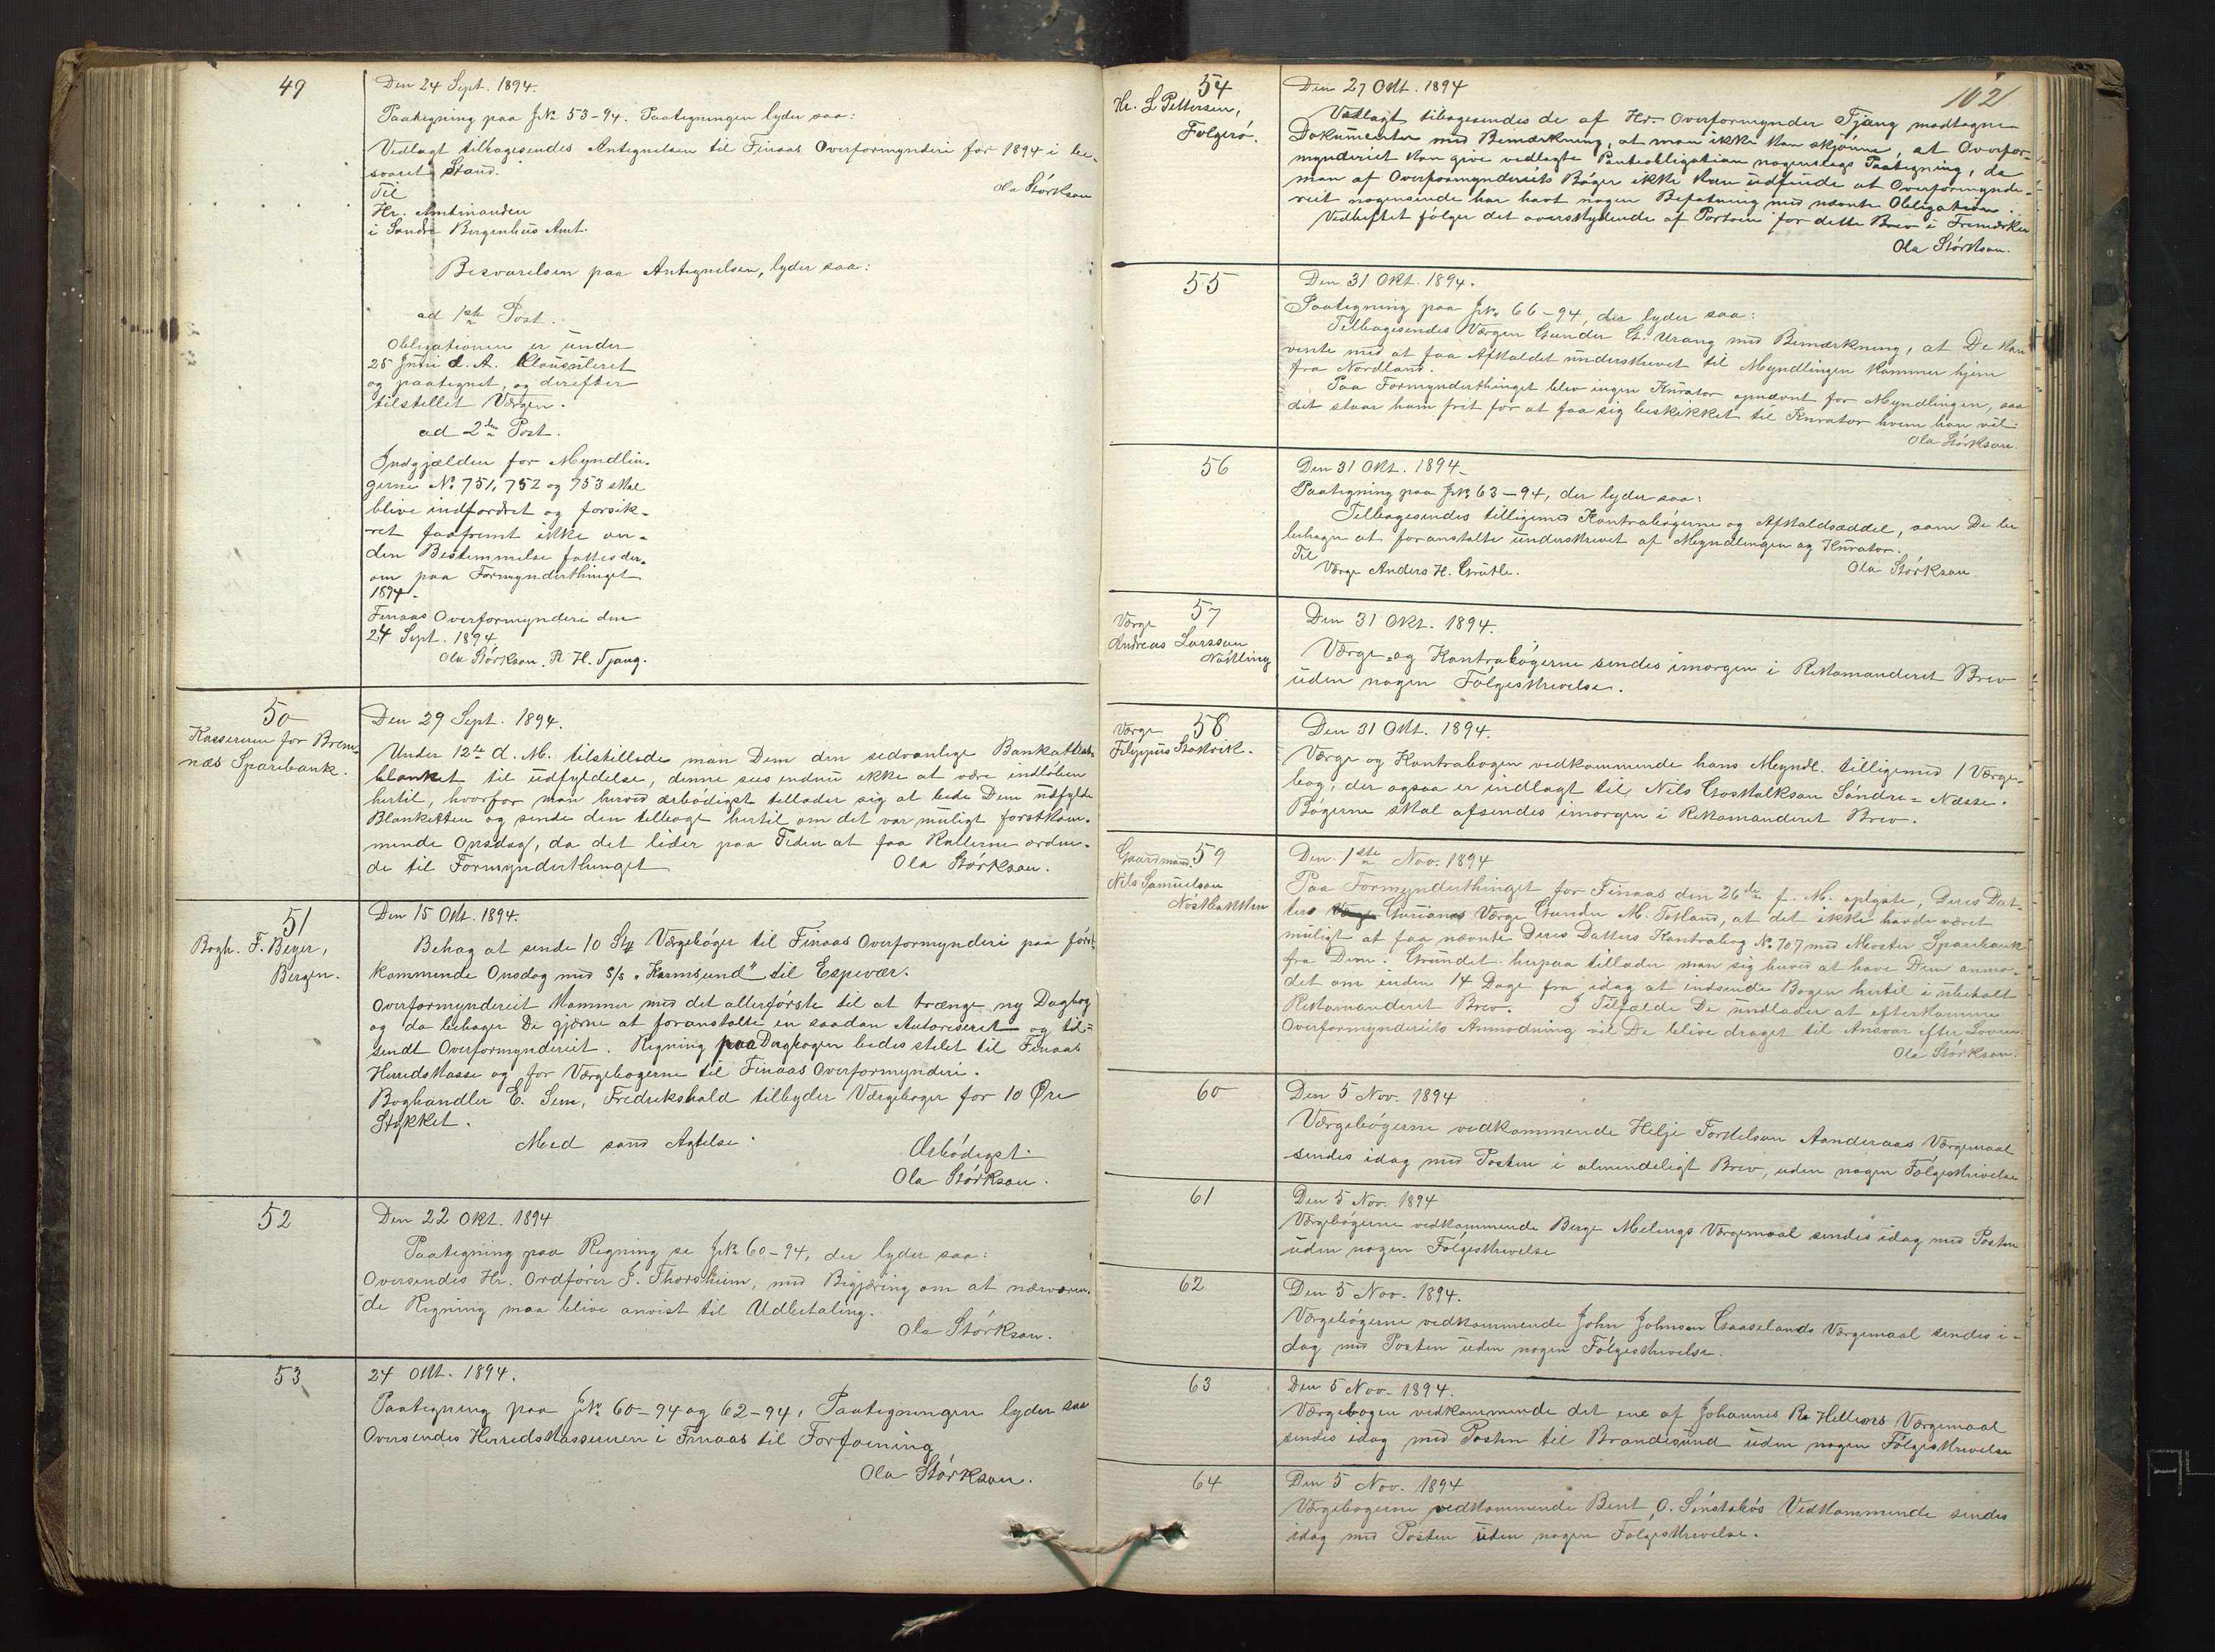 49
Den 24 Sept. 1894.
Paategning paa J№ 53-94. Paategningen lyder saa:
Vedlagt tilbagesendes Antegnelsen til Finaas Overformynderi for 1894 i be-
svaret Stand.
Ola Störkson
Til
Hr. Amtmanden
i Söndre Bergenhus Amt.
Besvarelsen paa Antegnelsen, lyder saa:
ad 1ste Post.
Obligationen er under
25 Juni d. A. klausuleret
og paategnet, og derefter
tilstillet Værgen.
ad 2den Post.
Indgjælden for Myndlin-
gerne № 751, 752 og 753 skal
blive indfordret og forsik-
ret saafremt ikke an-
den Bestemmelse fattes der-
om paa Formynderthinget
1894.
Finaas Overformynderi den
24 Sept. 1894
Ola Störkson. R. H. Tjang.
50
Kassereren for Brem-
næs Sparebank.
Den 29 Sept. 1894.
Under 12te d. M. tilstillede man Dem den sedvanlige Bankattest-
blanket til udfyldelse, denne sees endnu ikke at være indlöben
hertil, hvorfor man herved ærbödigst tillader sig at bede Dem udfylde
Blanketten og sende den tilbage hertil om det var muligt förstkom-
mende Onsdag, da det lider paa Tiden at faa Rullerne ordne-
de til Formynderthinget
Ola Störkson.
51
Bogh. F. Beyer,
Bergen.
Den 15 Okt. 1894.
Behag at sende 10 Stk Værgeböger til Finaas Overformynderi paa först-
kommende Onsdag med S/s "Karmsund" til Espevær.
Overformynderiet kommer med det allerförste til at trænge ny Dagbog
og da behager De gjærne at foranstalte en saadan Autoriseret og til-
sendt Overformynderiet. Regning paa Dagbogen bedes stilet til Finaas
Herredskasse og for Værgebogerne til Finaas Overformynderi.
Boghandler E. Sem, Fredrikshald tilbyder Værgeboger for 10 Øre
Stykket.
Med sand Agtelse
Ærbödigst
Ola Störkson.
52
Den 22 Okt. 1894
Paategning paa Regning se J№ 60-94, der lyder saa:
Oversendes Hr. Ordförer J. Thorsheim, med Begjæring om at næræven-
de Regning maa blive anvist til Udbetaling.
Ola Störkson.
53
24 Okt. 1894.
Paategning paa J№ 60-94 og 62-94, Paategningen lyder saa
Oversendes Herredskassereren i Finaas til Forföining
Ola Störkson.
102
54
Hr. L Pettersen,
Folgerö.
Den 27 Okt. 1894
Vedlagt tilbagesendes de af Hr. Overformynder Tjang modtagne
Dokumenter med Bemærkning, at man ikke kan skjönne, at Overfor-
mynderiet kan give vedlagte Panteobligation nogenslags Paategning, da
man af Overformynderiets Böger ikke kan udfinde at Overformynde-
riet nogensinde har havt nogen Befatning med nævnte Obligation.
Vedheftet fölger det overskydende af Portoen for dette Brev i Frimærker
Ola Störkson.
55
Den 31 Okt. 1894.
Paategning paa J№ 66-94, der lyder saa:
Tilbagesendes Værgen Gunder G. Urang med Bemærkning, at De kan
vente med at faa Afkaldet underskrevet til Myndlingen kommer hjem
fra Nordland.
Paa Formynderthinget blev ingen Kurator opnævnt for Myndlingen, saa
det staar ham frit for at faa sig beskikket til Kurator hvem han vil.
Ola Störkson.
56
Den 31 Okt. 1894.
Paategning paa J№ 63-94, der lyder saa:
Tilbagesendes tilligemed Kontrabögerne og Afkaldsæddel, som De be
behager at foranstalte underskrevet af Myndlingen og Kurator.
Til
Værge Anders H. Grutle.
Ola Störkson
57
Værge
Andreas Larsson
Nötling
Den 31 Okt. 1894.
Værge- og Kontrabögerne sendes imorgen i Rekomanderet Brev
uden nogen Fölgeskrivelse.
58
Værge
Filippus Stokvik.
Den 31 Okt. 1894.
Værge og Kontrabogen vedkommende hans Myndl. tilligemed 1 Værge-
bog, der ogsaa er indlagt til Nils Goskalkson Söndre-Næsse.
Bögerne skal afsendes imorgen i Rekomanderet Brev.
59
Gaardmand
Nils Samuelson
Nostbakken
Den 1ste Nov. 1894
Paa Formynderthinget for Finaas den 26de f. M. oplyste, Deres Dat-
ters Gurianes Værge Gunder M. Totland, at det ikke havde været
muligt at faa nævnte Deres Datters Kontrabog № 707 med Moster Sparebank
fra Dem. Grundet herpaa tillader man sig herved at have Dem anmo-
det om inden 14 Dage fra idag at indsende Bogen hertil i ubetalt
Rekomanderet Brev. I Tilfælde De undlader at efterkomme
Overformynderiets Anmodning vil De blive draget til Ansvar efter Loven.
Ola Störkson.
60
Den 5 Nov. 1894
Værgebögerne vedkommende Helje Torkelson Aanderaas Værgemaal
sendes idag med Posten i almindeligt Brev, uden nogen Fölgeskrivelse
61
Den 5 Nov. 1894
Værgebögerne vedkommende Berge Melings Værgemaal sendes idag med Posten
uden nogen Fölgeskrivelse
62
Den 5 Nov. 1894.
Værgebögerne vedkommende John Johnson Gaaselands Værgemaal sendes i-
dag med Posten uden nogen Fölgeskrivelse.
63
Den 5 Nov. 1894.
Værgebogen vedkommende det ene af Johannes R. Hellens Værgemaal
sendes idag med Posten til Brandesund uden nogen Fölgeskrivelse
64
Den 5 Nov. 1894
Værgebogerne vedkommende Bent O. Sönstabös Vedkommende sendes
idag med Posten uden nogen Folgeskrivelse.